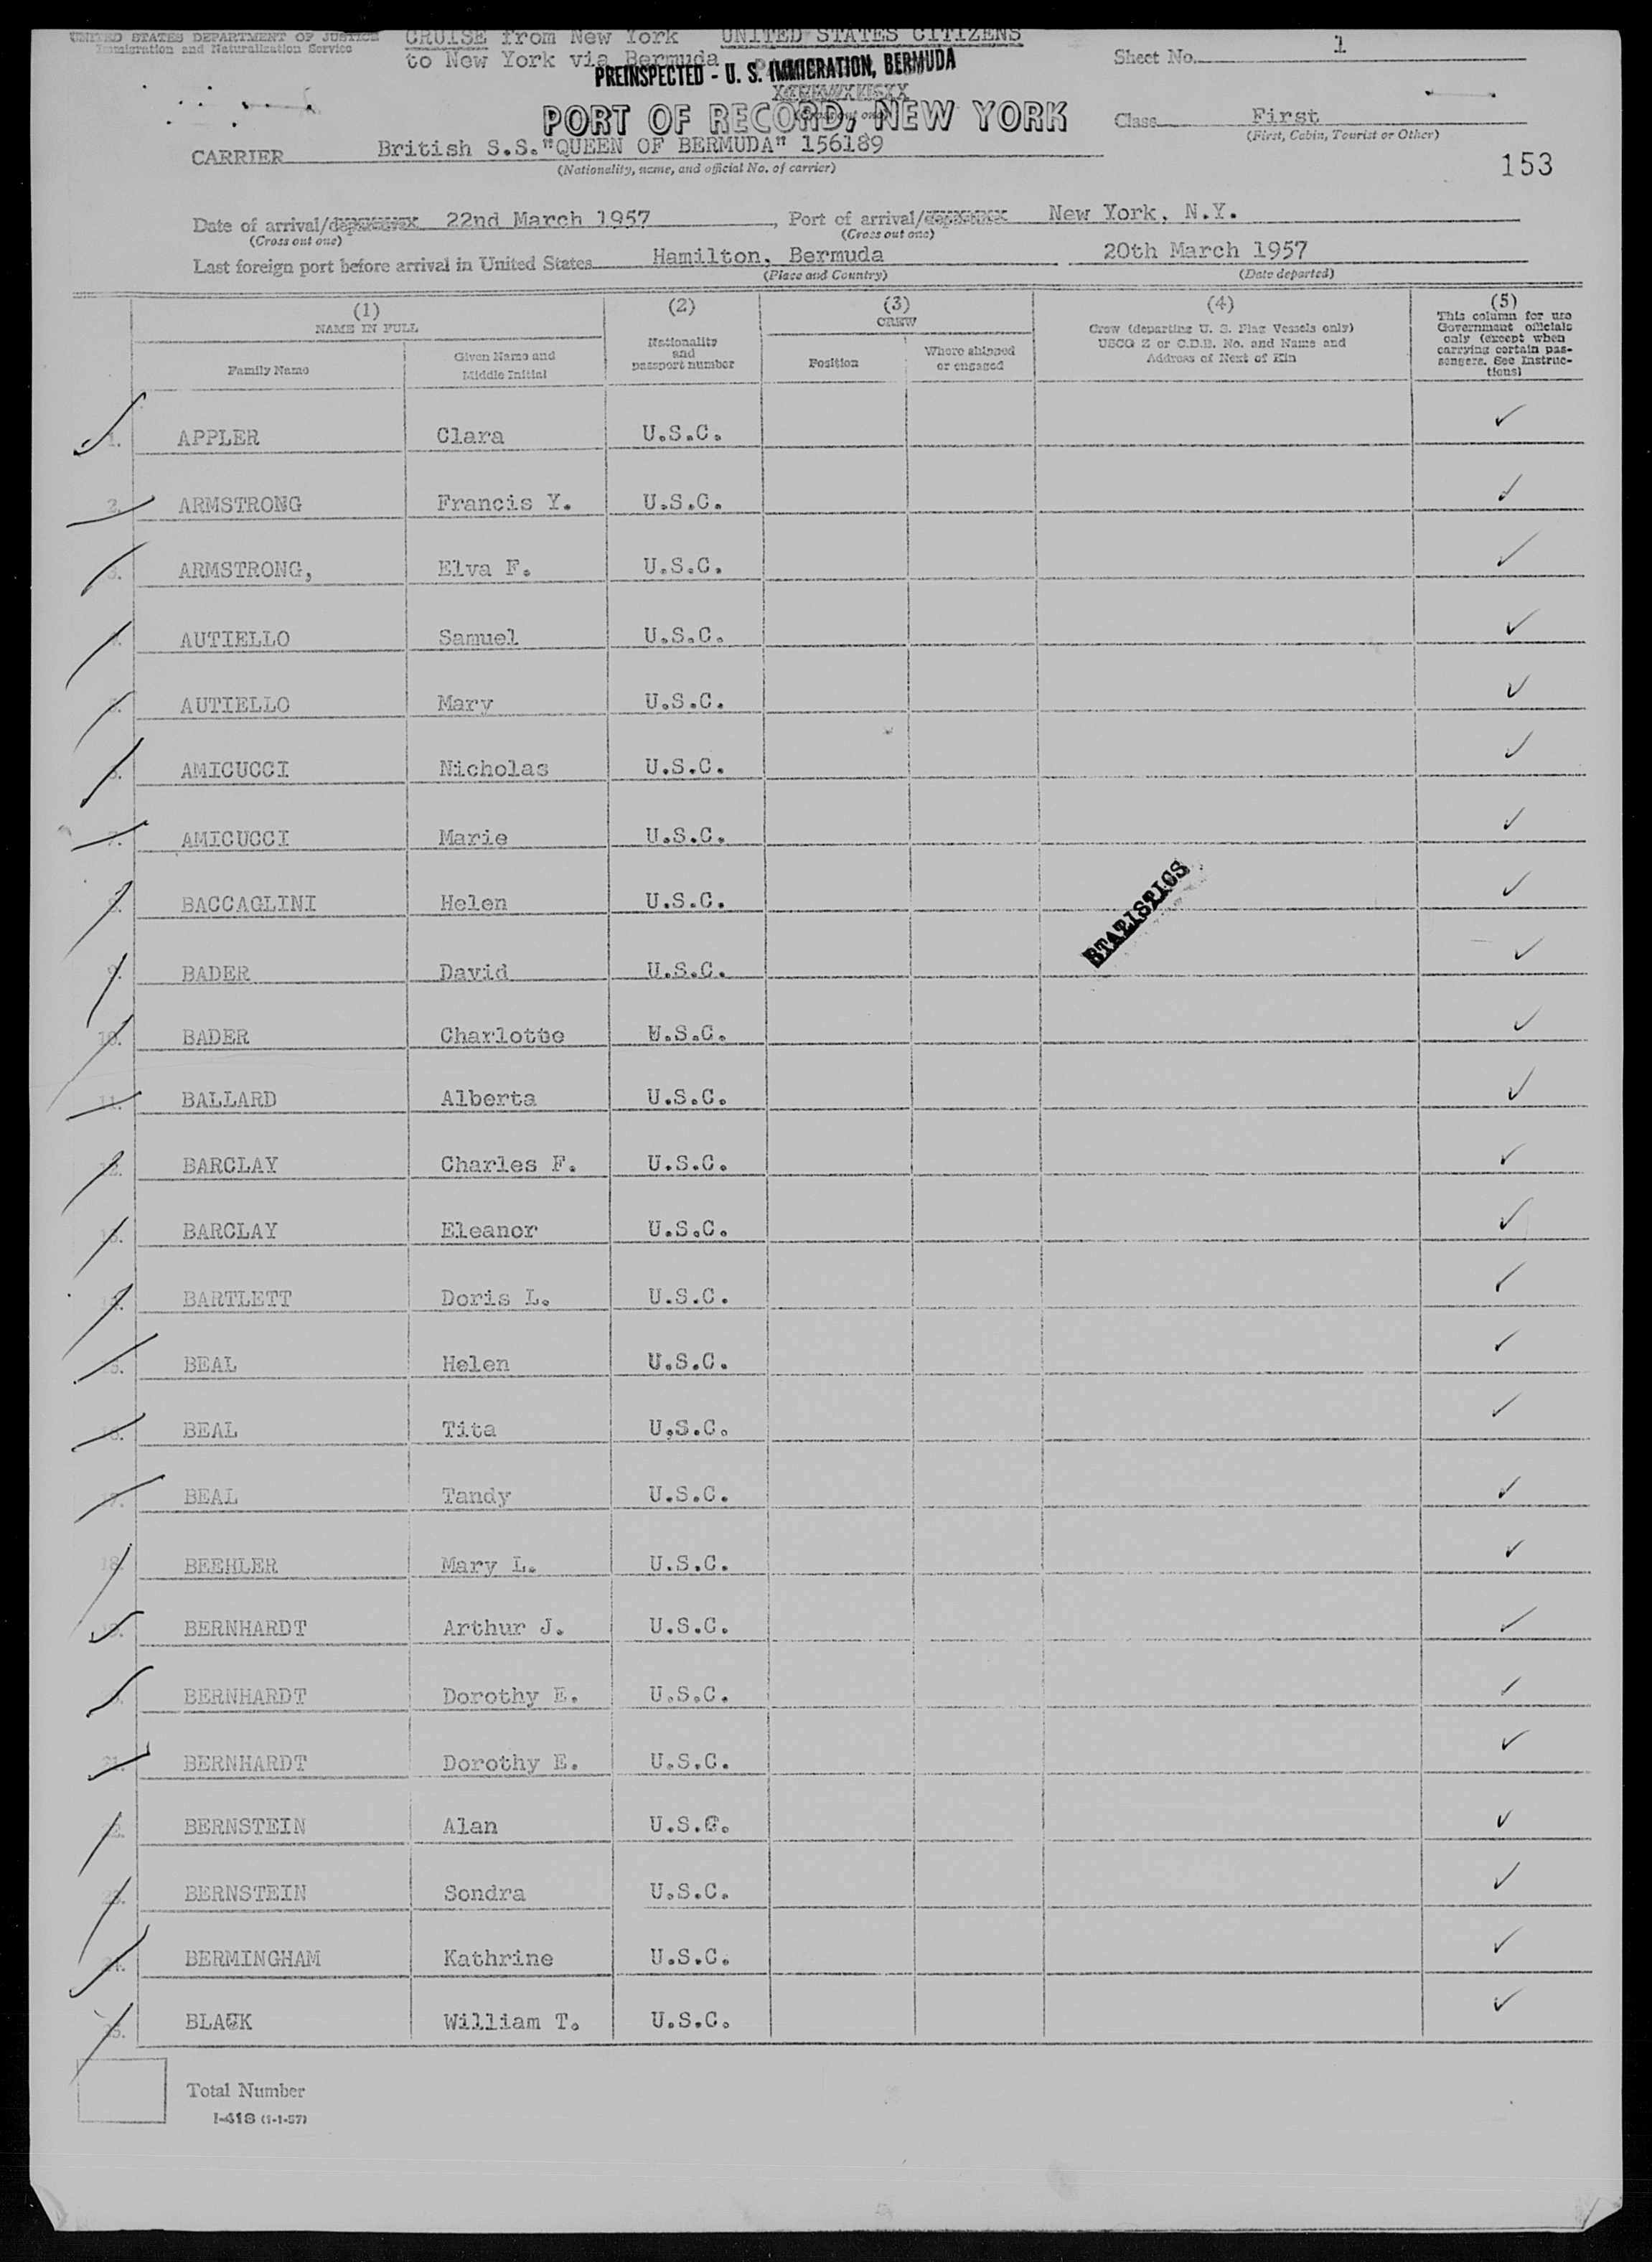 UNITED STATES DEPARTMENT OF JUSTICE
Immigration and Naturalization Service
CRUISE from New York UNITED STATES CITIZENS
to New York via Bermuda
PREINSPECTED - U. S. IMMIGRATION, BERMUDA
Sheet No. 1
PORT OF RECORD, NEW YORK
Class First
(First, Cabin, Tourist or Other)
CARRIER British S.S."QUEEN OF BERMUDA" 156189
(Nationality, name, and official No. of carrier)
153
Date of arrival/ 22nd March 1957, Port of arrival/ New York, N.Y.
(Cross out one) (Cross out one)
Last foreign port before arrival in United States Hamilton, Bermuda 20th March 1957
(Place and Country) (Date departed)
(1) (2) (3) (4) (5)
NAME IN FULL
Family Name
Given Name and Middle Initial
Nationality and passport number
CREW
Position
Where shipped or engaged
Crew (departing U. S. Flag Vessels only) USCG Z or C.D.B. No. and Name and Address of Next of Kin
This column for use Government officials only (except when carrying certain passengers. See Instructions)
1. APPLER Clara U.S.C.
2. ARMSTRONG Francis Y. U.S.C.
3. ARMSTRONG, Elva F. U.S.C.
4. AUTIELLO Samuel U.S.C.
5. AUTIELLO Mary U.S.C.
6. AMICUCCI Nicholas U.S.C.
7. AMICUCCI Marie U.S.C.
8. BACCAGLINI Helen U.S.C.
STATISTICS
9. BADER David U.S.C.
10. BADER Charlotte U.S.C.
11. BALLARD Alberta U.S.C.
12. BARCLAY Charles F. U.S.C.
13. BARCLAY Eleanor U.S.C.
14. BARTLETT Doris L. U.S.C.
15. BEAL Helen U.S.C.
16. BEAL Tita U.S.C.
17. BEAL Tandy U.S.C.
18. BEEHLER Mary L. U.S.C.
19. BERNHARDT Arthur J. U.S.C.
20. BERNHARDT Dorothy E. U.S.C.
21. BERNHARDT Dorothy E. U.S.C.
22. BERNSTEIN Alan U.S.C.
23. BERNSTEIN Sondra U.S.C.
24. BERMINGHAM Kathrine U.S.C.
25. BLAUK William T. U.S.C.
Total Number
I-418 (1-1-57)